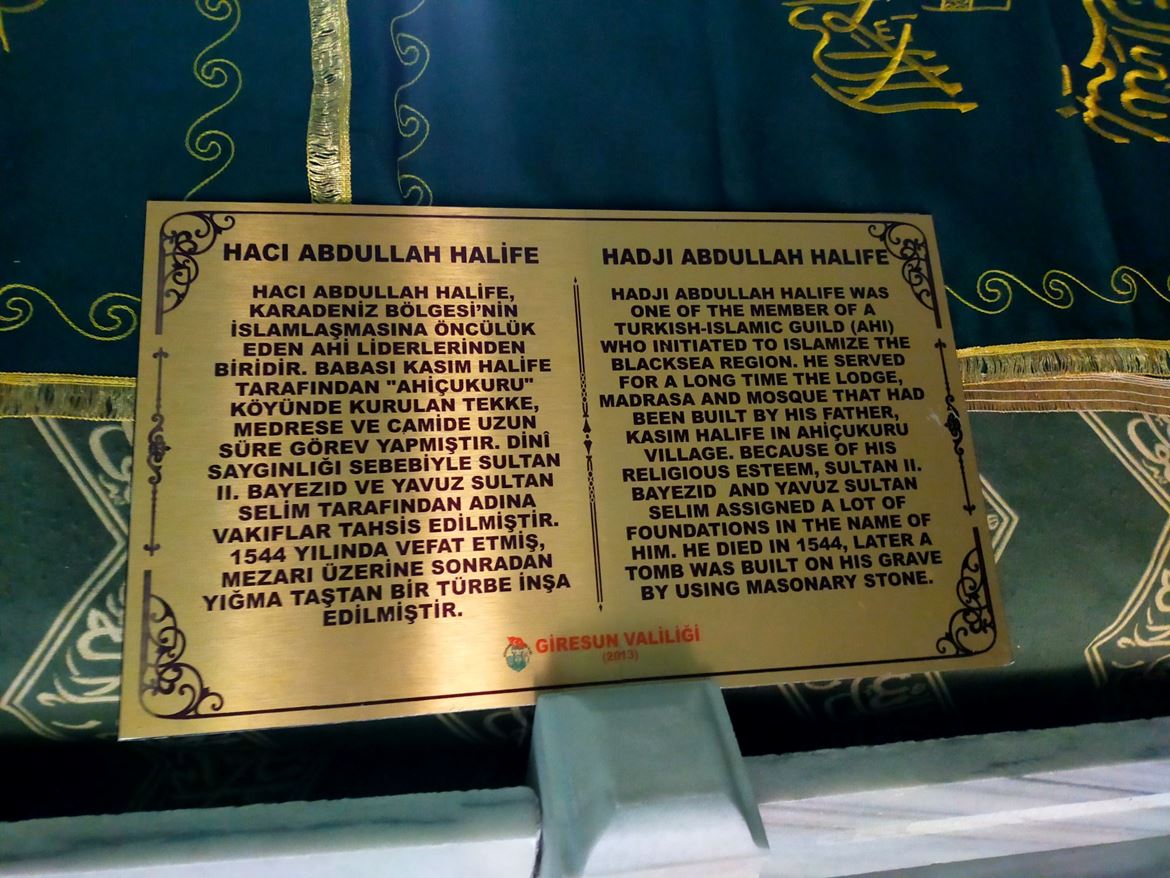 HACI ABDULLAH HALİFE
HACI ABDULLAH HALİFE,
KARADENİZ BÖLGESİ'NİN
İSLAMLAŞMASINA ÖNCÜLÜK
EDEN AHİ LİDERLERİNDEN
BİRİDİR. BABASI KASIM HALİFE
TARAFINDAN "AHİÇUKURU"
KÖYÜNDE KURULAN TEKKE,
MEDRESE VE CAMİDE UZUN
SÜRE GÖREV YAPMIŞTIR. DİNÎ
SAYGINLIĞI SEBEBİYLE SULTAN
II. BAYEZID VE YAVUZ SULTAN
SELİM TARAFINDAN ADINA
VAKIFLAR TAHSİS EDİLMİŞTİR.
1544 YILINDA VEFAT ETMİŞ,
MEZARI ÜZERİNE SONRADAN
YIĞMA TAŞTAN BİR TÜRBE İNŞA
EDİLMİŞTİR.
HADJI ABDULLAH HALIFE
HADJI ABDULLAH HALIFE WAS
ONE OF THE MEMBER OF A
TURKISH-ISLAMIC GUILD (AHI)
WHO INITIATED TO ISLAMIZE THE
BLACKSEA REGION. HE SERVED
FOR A LONG TIME THE LODGE,
MADRASA AND MOSQUE THAT HAD
BEEN BUILT BY HIS FATHER,
KASIM HALIFE IN AHİÇUKURU
VILLAGE. BECAUSE OF HIS
RELIGIOUS ESTEEM, SULTAN II.
BAYEZID AND YAVUZ SULTAN
SELIM ASSIGNED A LOT OF
FOUNDATIONS IN THE NAME OF
HIM. HE DIED IN 1544, LATER A
TOMB WAS BUILT ON HIS GRAVE
BY USING MASONARY STONE.
GİRESUN VALİLİĞİ
(2013)